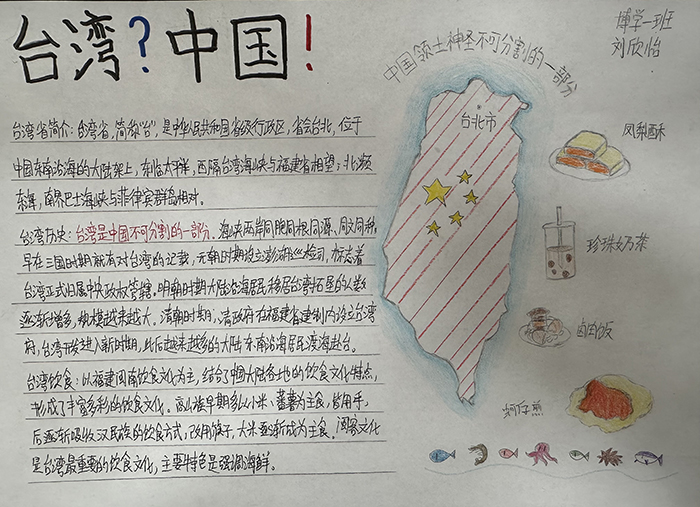 台湾？中国！
博学一班
刘欣怡
中国领土神圣不可分割的一部分
台湾省简介：台湾省，简称“台”，是中华人民共和国省级行政区，省会台北，位于
中国东南沿海的大陆架上，东临太平洋，西隔台湾海峡与福建省相望；北濒
东海，南界巴士海峡与菲律宾群岛相对。
台湾历史：台湾是中国不可分割的一部分。海峡两岸同胞同根同源、同文同种，
早在三国时期就有对台湾的记载，元朝时期设立澎湖巡检司，标志着
台湾正式归属中央政权管辖。明朝时期大陆沿海居民移居台湾拓垦的人数
逐渐增多，规模越来越大。清朝时期，清政府在福建省建制内设立台湾
府，台湾开发进入新时期，此后越来越多的大陆东南沿海居民渡海赴台。
台湾饮食：以福建闽南饮食文化为主，结合了中国大陆各地的饮食文化特点，
形成了丰富多彩的饮食文化。高山族早期多以小米、蕃薯为主食，皆用手，
后逐渐吸收汉民族的饮食方式，改用筷子，大米逐渐成为主食。闽客文化
是台湾最重要的饮食文化，主要特色是强调海鲜。
台北市
凤梨酥
珍珠奶茶
卤肉饭
蚵仔煎